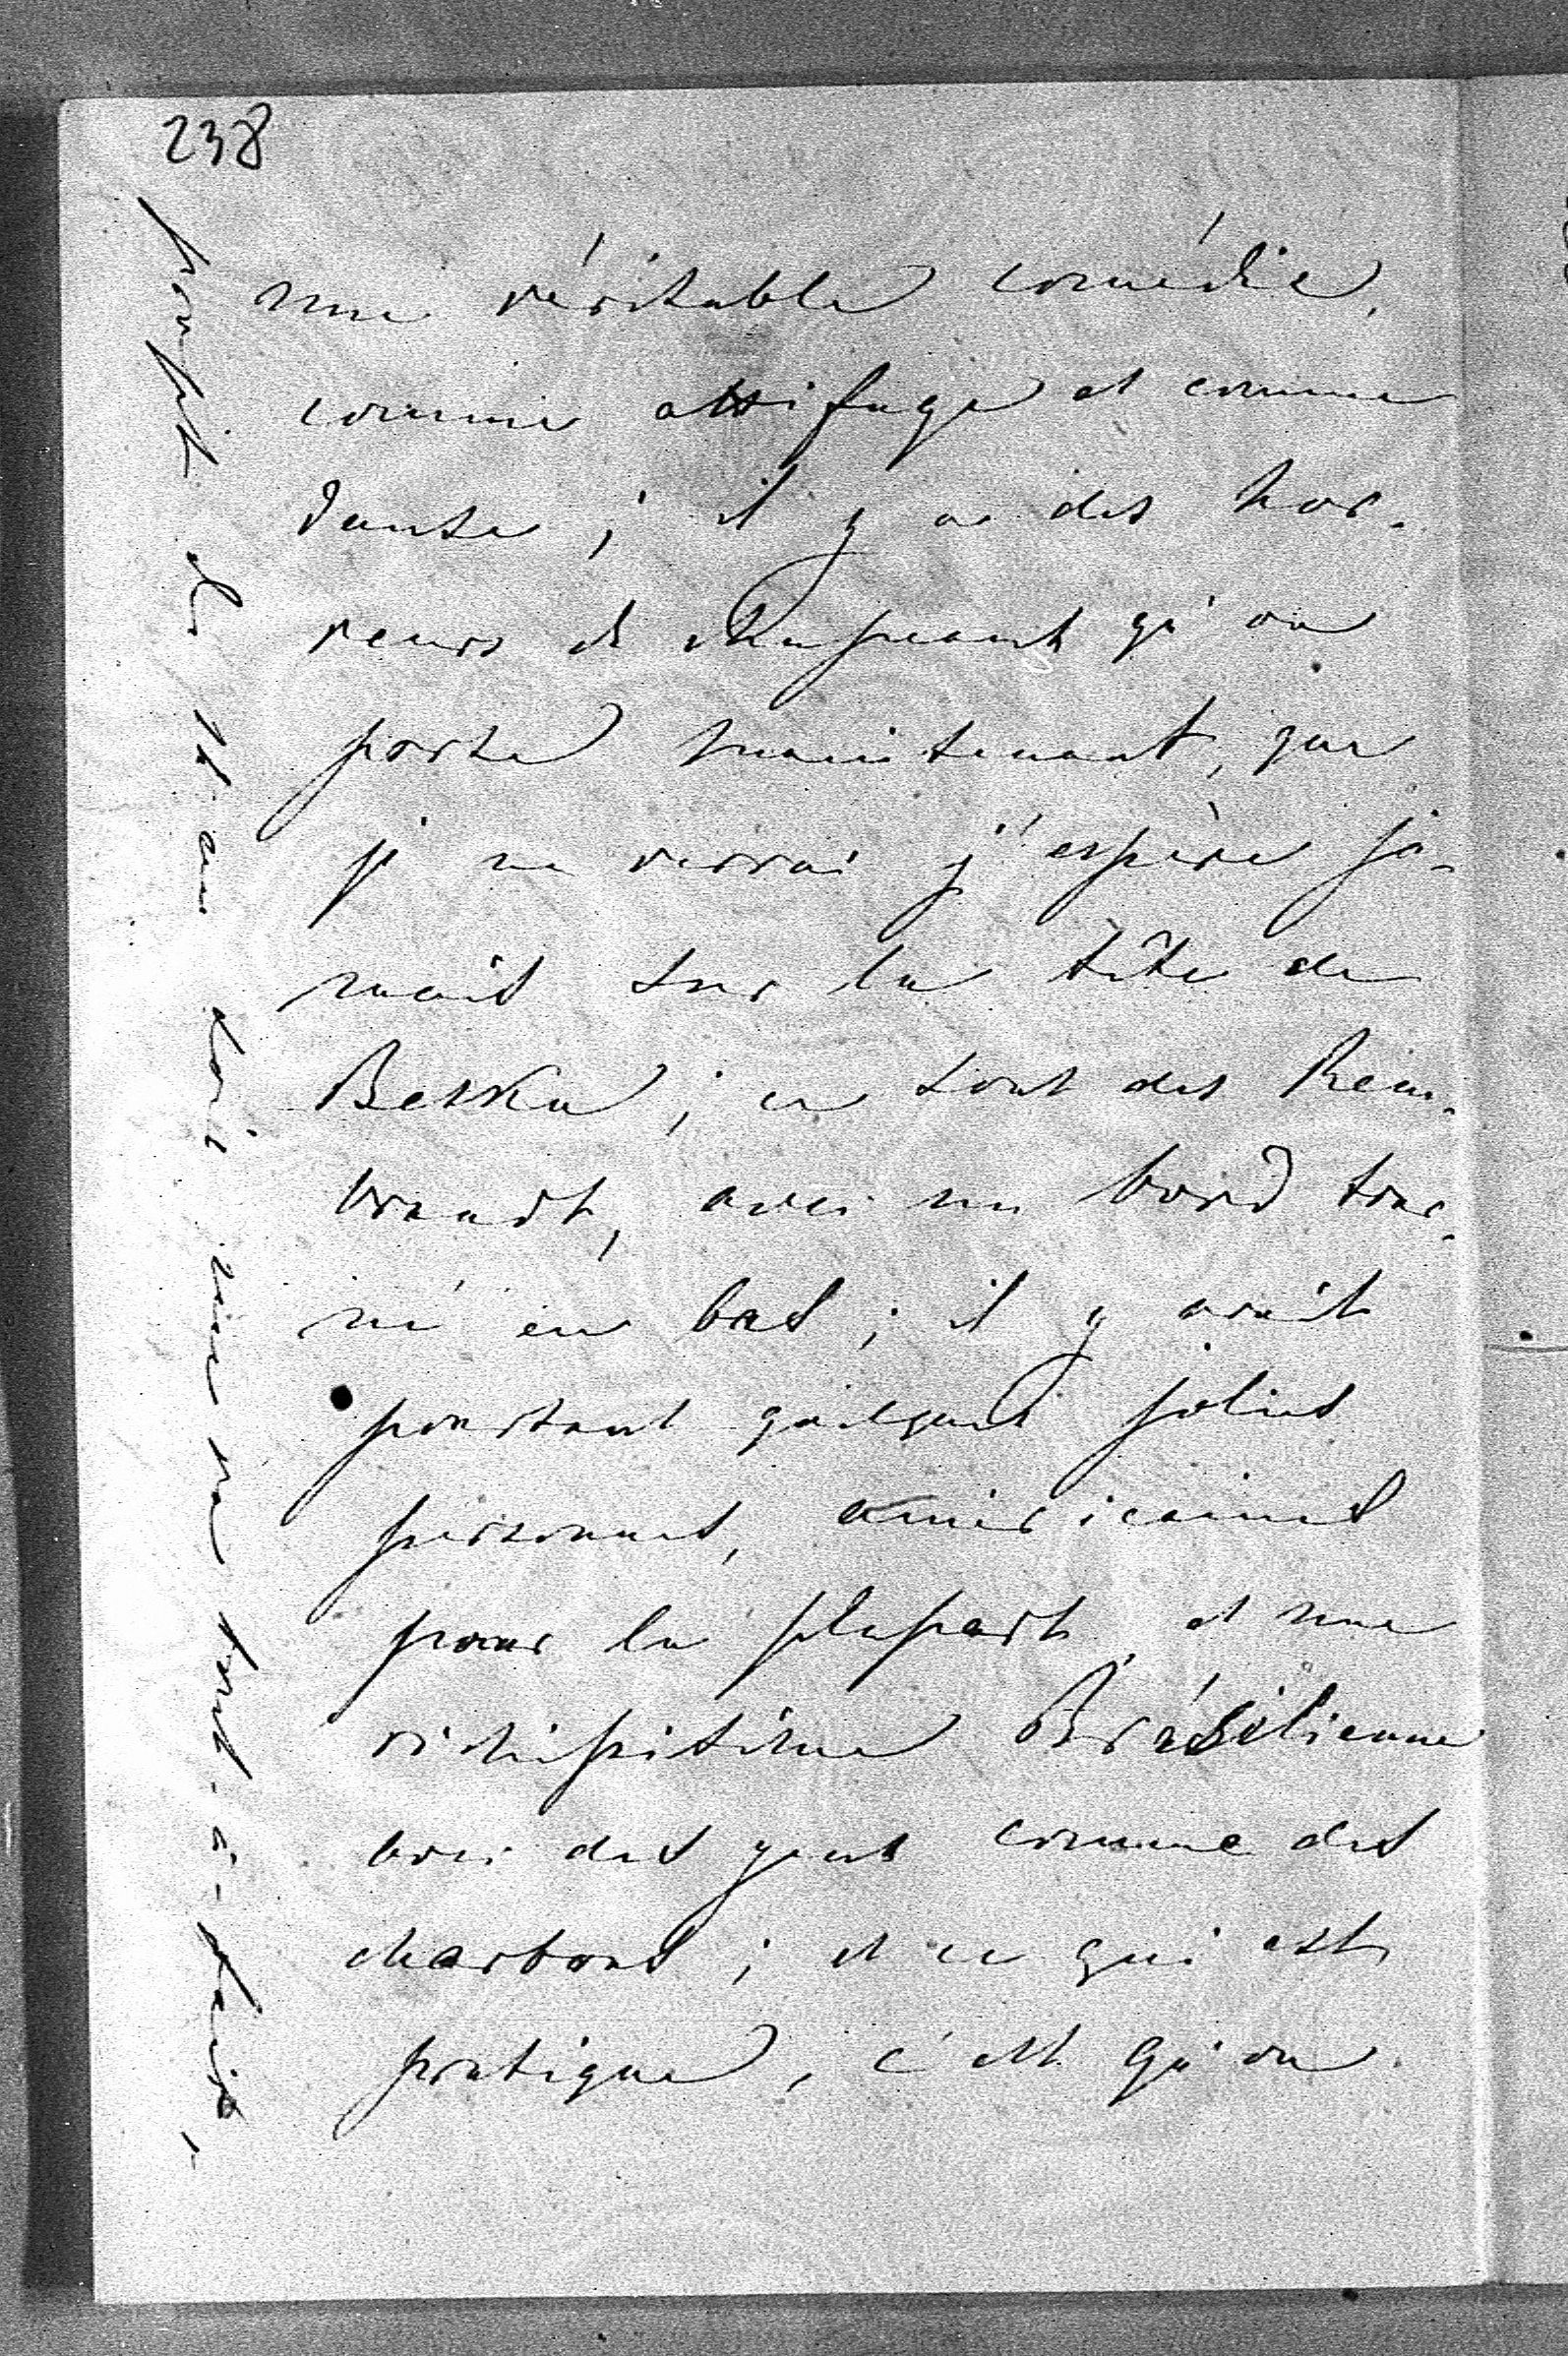 238
une véritable comédie,
comme attifage et comme
danse ; il y a des hor-
reurs de chapeaux qu'on
porte maintenant, que
je ne verrai j'espère ja-
mais sur la tête de
Betka ; ce sont des Rem-
brandt, avec un bord tour-
né en bas ; il y avait
pourtant quelques jolies
personnes, américaines
pour la plupart, et une
richissitime Brésilienne
avec des yeux comme des
charbons ; et ce qui est
pratique, c'est qu'on
est au
tout-à-fait